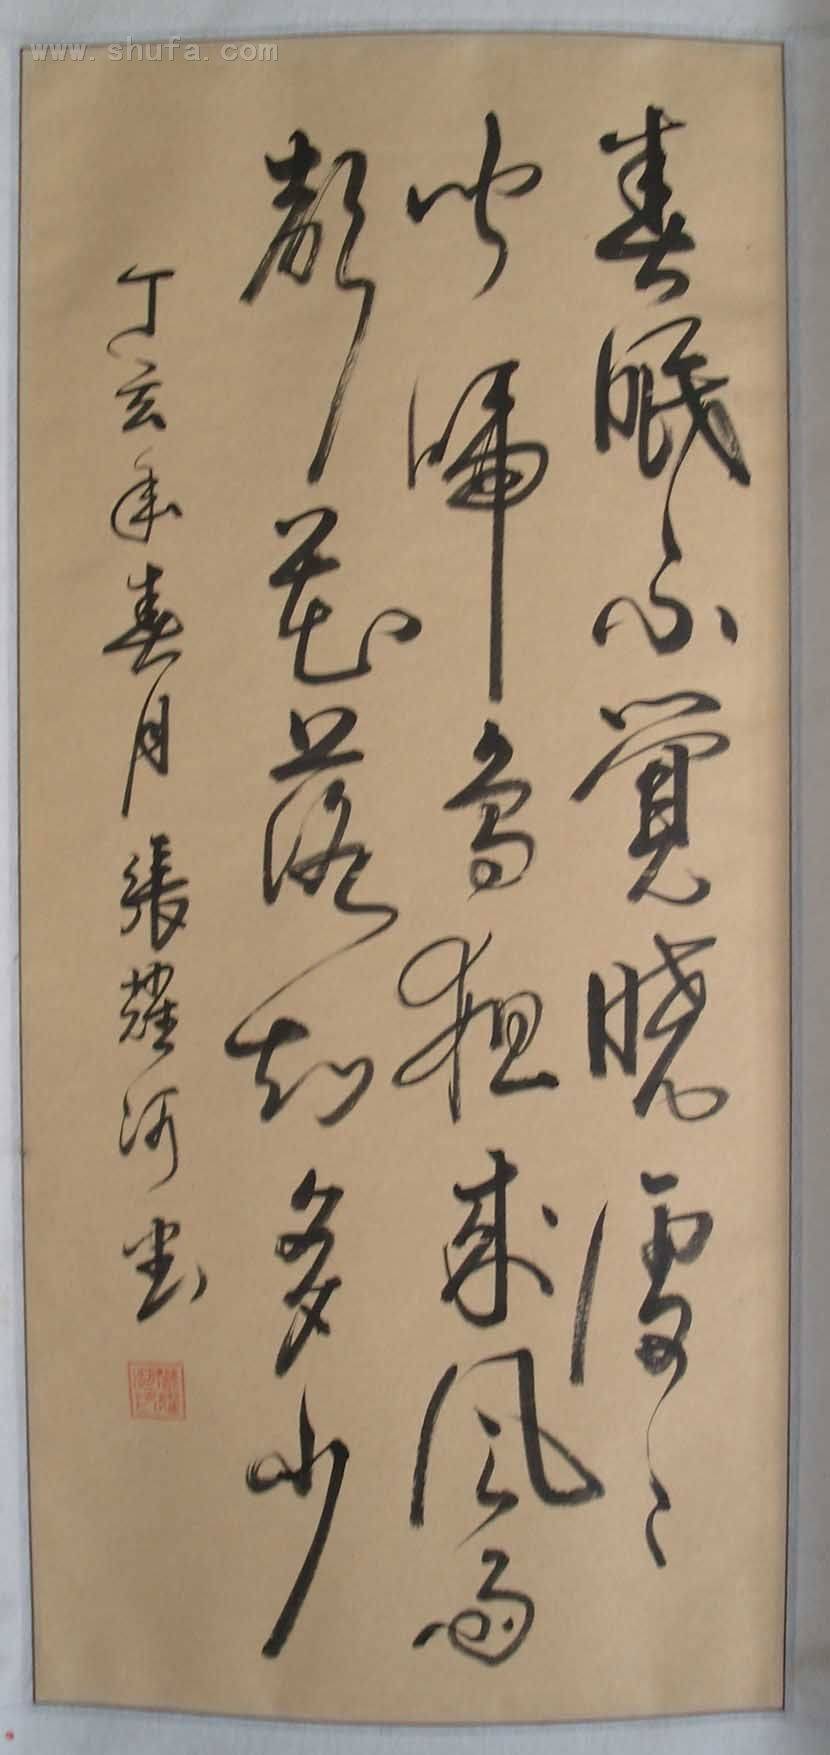 www.shufa.com
春眠不覺曉處々
聞啼鳥夜來風雨
聲花落知多少
丁亥年春月張耀河書